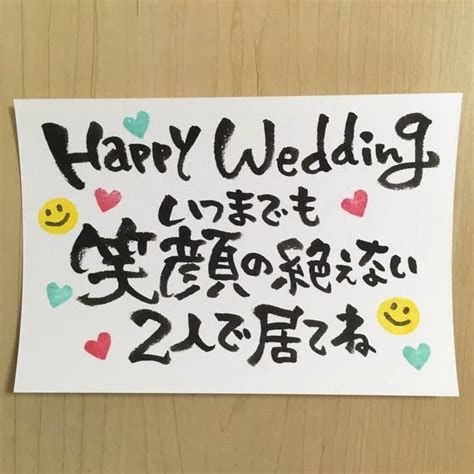 Happy Wedding
いつまでも
笑顔の絶えない
2人で居てね